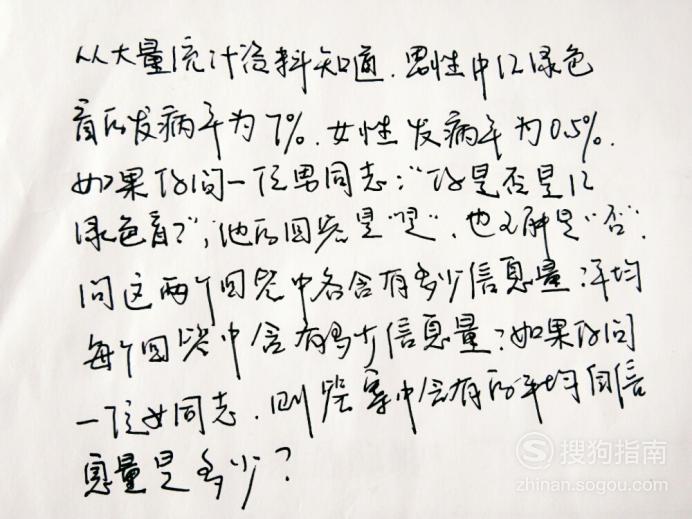 从大量统计资料知道.男性中红绿色
盲的发病率为7%.女性发病率为0.5%.
如果你问一位男同志:“你是否是红
绿色盲?”,他的回答是“是”.也可能是“否”.
问这两个回答中各含有多少信息量?平均
每个回答中含有多少信息量?如果你问
一位女同志.则答案中含有的平均自信
息量是多少?
搜狗指南
zhinan.sogou.com